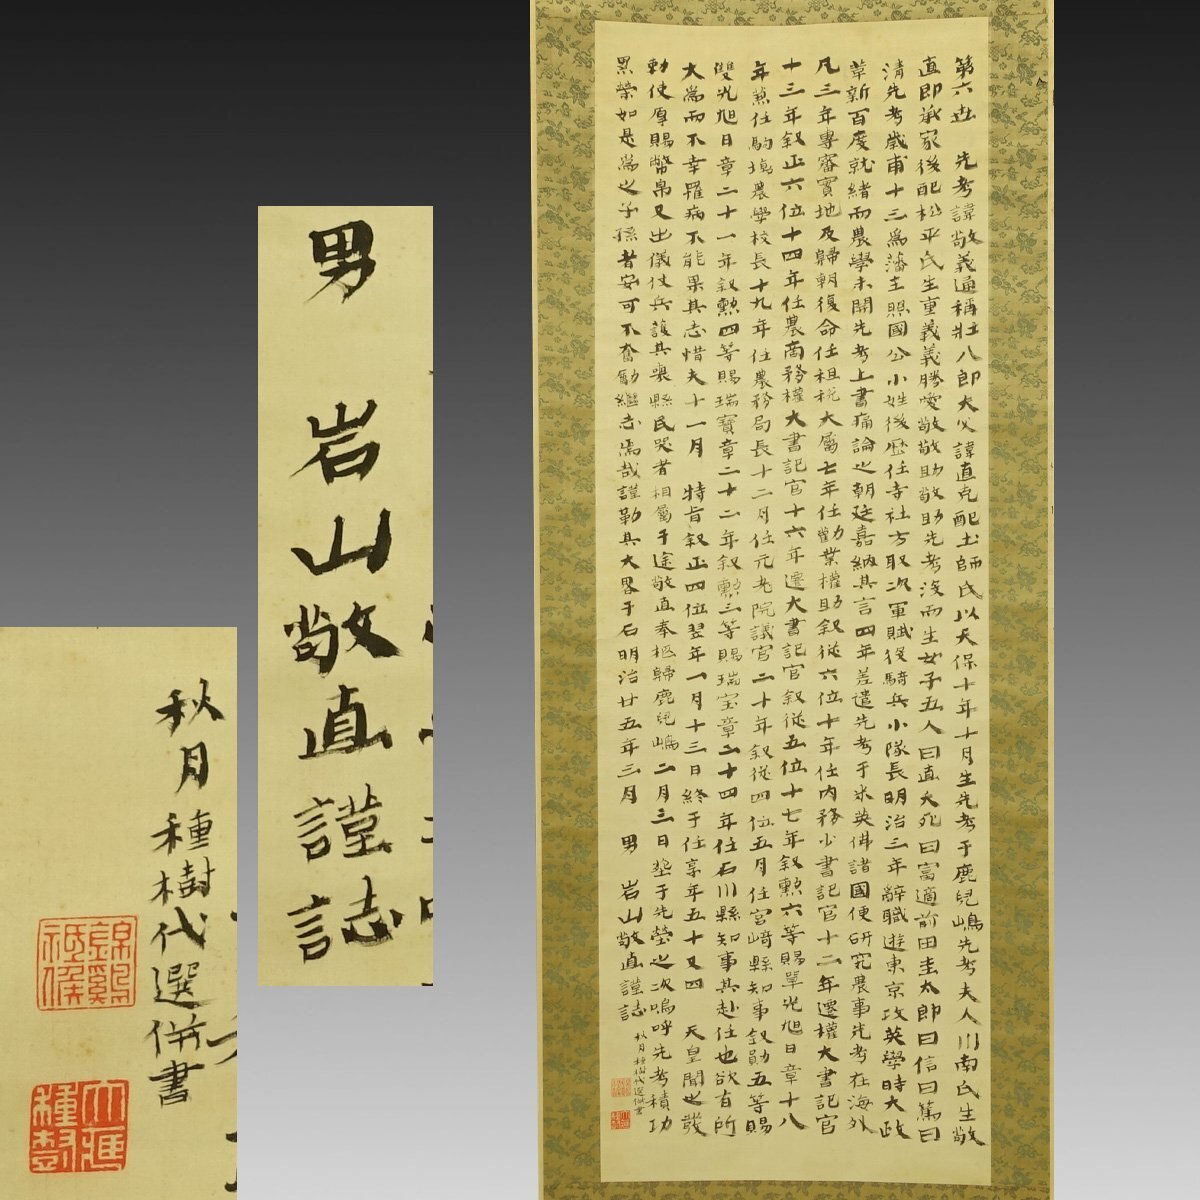 第六世　先考諱敬義通稱壯八郎大父諱直克配土師氏以天保十年十月生先考于鹿兒嶋先考夫人川南氏生敬
直即承家後配松平氏生重義義勝唆敬敬助敬助先考沒而生女子五人曰直夭死曰富適前田圭太郎曰信曰篤曰
清先考歲甫十三爲藩主照國公小姓後歷任寺社方取次軍賦役騎兵小隊長明治三年辭職遊東京攻英學時大政
革新百度就緒而農學未開先考上書痛論之朝廷嘉納其言四年差遣先考于米英佛諸國使研究農事先考在海外
凡三年專審實地及歸朝復命任租稅大屬七年任勸業權助叙從六位十年任內務少書記官十二年遷權大書記官
十三年叙正六位十四年任農商務權大書記官十六年遷大書記官叙從五位十七年叙勲六等賜單光旭日章十八
年兼任駒塲農學校長十九年任農務局長十二月任元老院議官二十年叙從四位五月任宮崎縣知事叙勛五等賜
雙光旭日章二十一年叙勲四等賜瑞寶章二十二年叙勲三等賜瑞宝章二十四年任石川縣知事其赴任也欲有所
大爲而不幸罹病不能果其志惜夫十一月　特旨叙正四位翌年一月十三日終于任享年五十又四　天皇聞之發
勅使厚賜幣帛又出儀仗兵護其喪縣民哭者相屬于途敬直奉柩歸鹿兒嶋二月三日塟于先塋之次嗚呼先考積功
累榮如是爲之子孫者安可不奮勵繼志焉哉謹勒其大畧于石明治廿五年三月　男　岩山敬直謹誌
秋月種樹代選併書
男　岩山敬直謹誌
秋月種樹代選併書
錦鷄
祗候
種樹